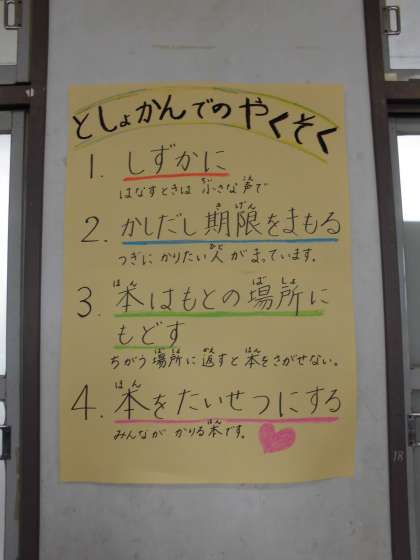 としょかんでのやくそく
1. しずかに
はなすときは 小さな声で
2. かしだし期限をまもる
つぎに かりたい人が まっています。
3. 本はもとの場所に
もどす
ちがう場所に返すと本をさがせない。
4. 本をたいせつにする
みんなが かりる本です。
18